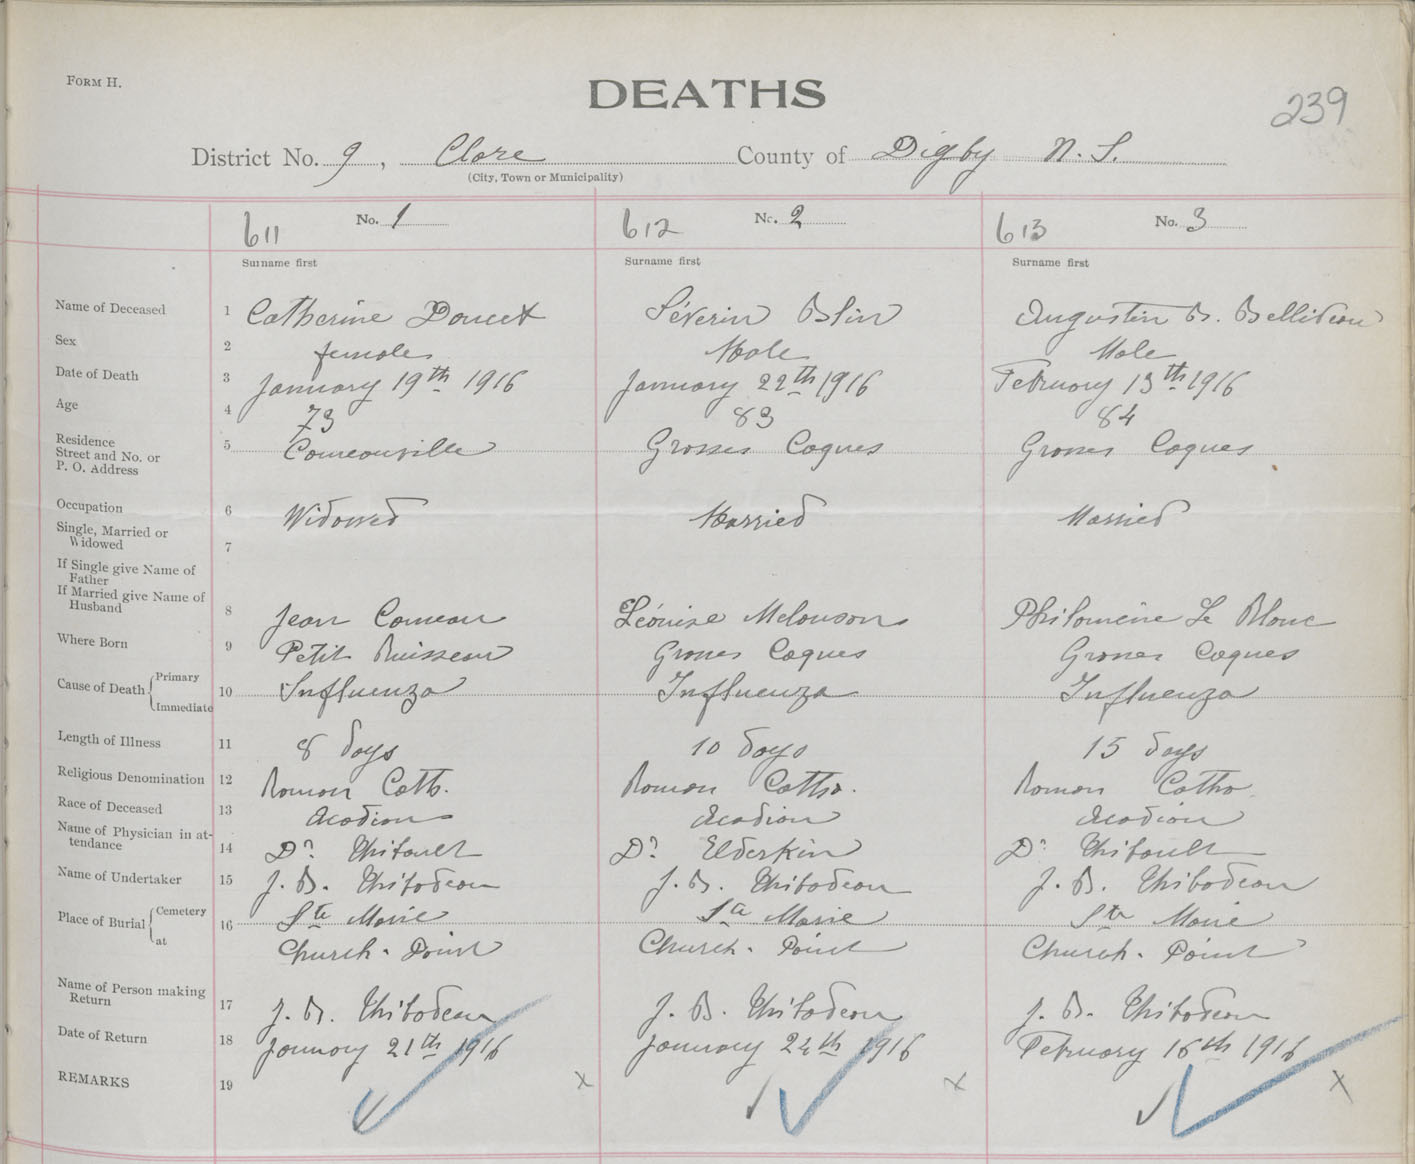 FORM H.
DEATHS
239
District No. 9, Clare County of Digby N. S.
(City, Town or Municipality)
611 No. 1 612 No. 2 613 No. 3
Surname first Surname first Surname first
Name of Deceased 1 Catherine Doucet Séverin Blin Augustin B. Belliveau
Sex 2 female Male Male
Date of Death 3 January 19th 1916 January 22th 1916 February 13th 1916
Age 4 73 83 84
Residence
Street and No. or
P. O. Address 5 Comeauville Grosses Coques Grosses Coques
Occupation 6 Widowed Married Married
Single, Married or
Widowed 7
If Single give Name of
Father
If Married give Name of
Husband 8 Jean Comeau Léonise Melonson Philomène Le Blanc
Where Born 9 Petit Ruisseau Grosses Coques Grosses Coques
Cause of Death Primary
Immediate 10 Influenza Influenza Influenza
Length of Illness 11 8 days 10 days 15 days
Religious Denomination 12 Roman Cath. Roman Catho. Roman Catho.
Race of Deceased 13 Acadian Acadian Acadian
Name of Physician in at-
tendance 14 Dr Thibault Dr Elderkin Dr Thibault
Name of Undertaker 15 J. B. Thibodeau J. B. Thibodeau J. B. Thibodeau
Place of Burial Cemetery
at 16 Ste Marie Ste Marie Ste Marie
Church-Point Church-Point Church-Point
Name of Person making
Return 17 J. B. Thibodeau J. B. Thibodeau J. B. Thibodeau
Date of Return 18 January 21th 1916 January 24th 1916 February 16th 1916
REMARKS 19 x x x